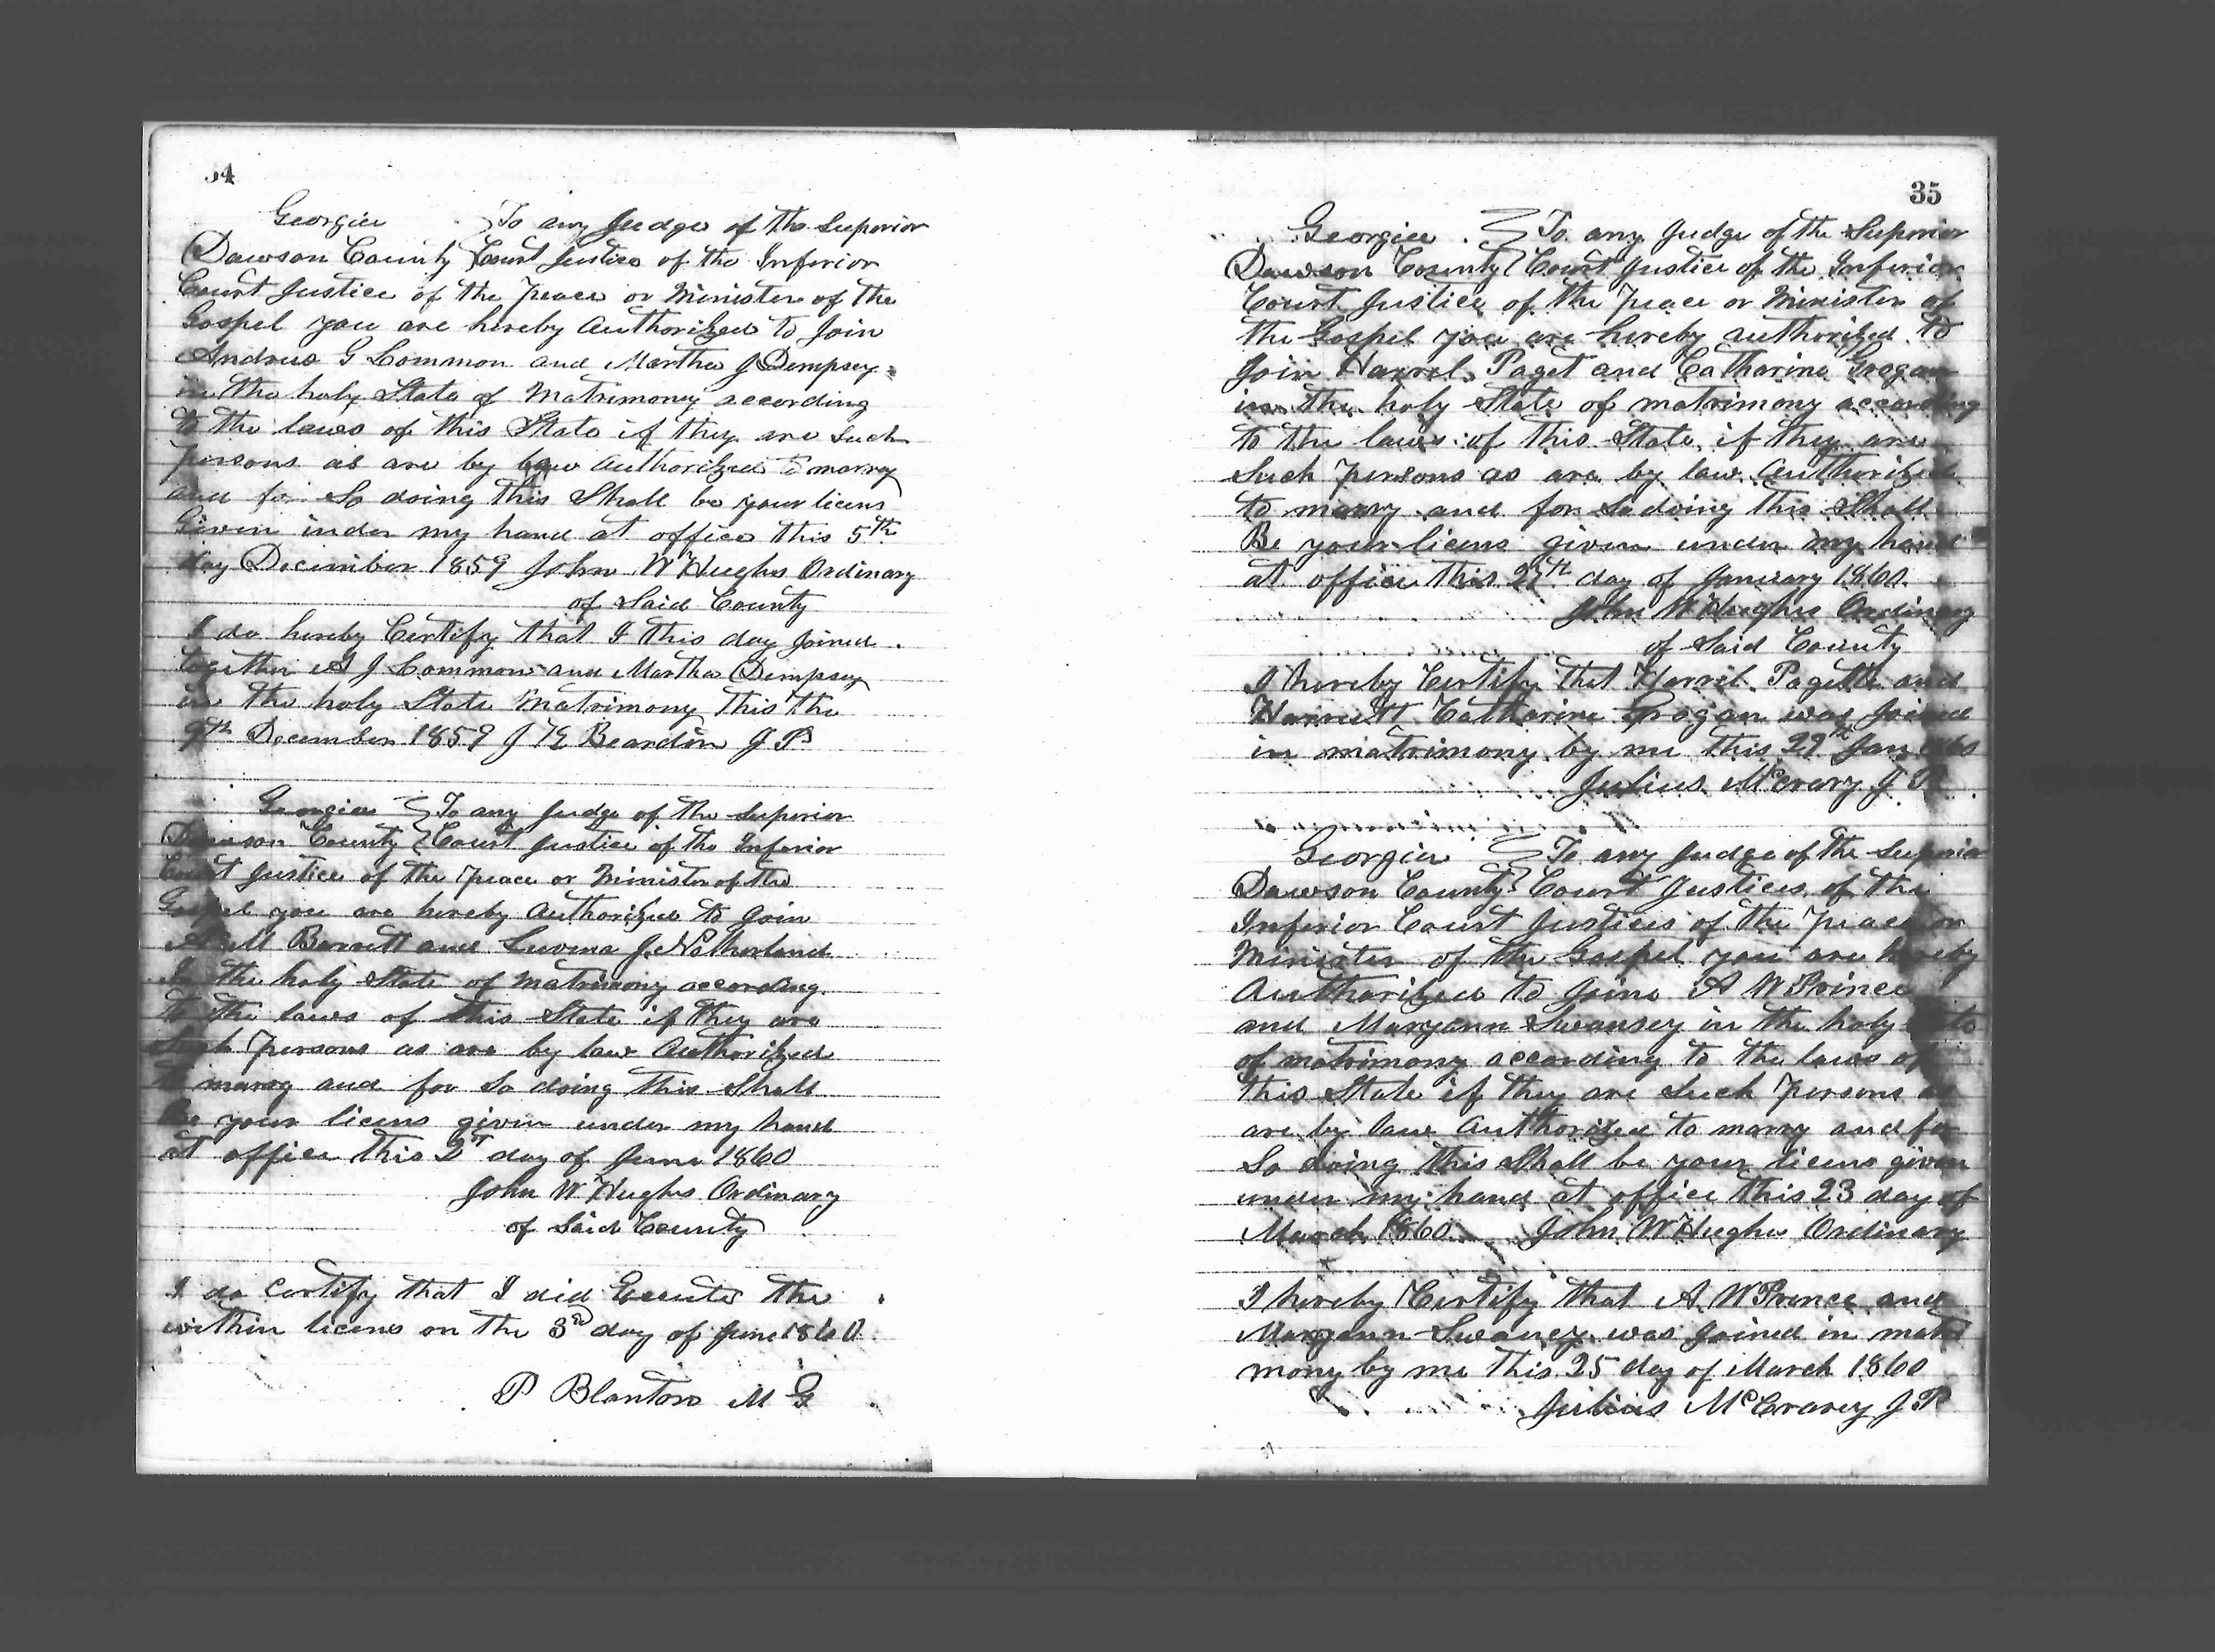 34
Georgia } To any Judge of the Superior
Dawson County } Court Justice of the Inferior
Court Justice of the peace or Minister of the
Gospel you are hereby Authorized to Join
Andrew G Common and Martha J Dempsey
in the holy State of Matrimony according
to the laws of this State if they are Such
persons as are by law Authorized to marry
and for So doing this Shall be your licens
Given under my hand at office this 5th
day December 1859 John W Hughs Ordinary
of Said County
I do hereby Certify that I this day joined
together A J Common and Martha Dempsey
in the holy State Matrimony This the
9th December 1859 J E Beardin J P
Georgia } To any Judge of the Superior
Dawson County } Court Justice of the Inferior
Court Justice of the peace or Minister of the
Gospel you are hereby Authorized to Join
Barrett and Luvena J. Netherland
In the holy State of Matrimony according
to the laws of this State if they are
Such persons as are by law Authorized
to marry and for So doing this Shall
be your licens given under my hand
at office this 2d day of June 1860
John W Hughs Ordinary
of Said County
I do Certify that I did Execute the
within licens on the 3rd day of June 1860
P Blanton M G
35
Georgia } To any Judge of the Superior
Dawson County } Court Justice of the Inferior
Court Justice of the peace or Minister of
the Gospel you are hereby authorized to
Join Harrel Paget and Catharine Grogan
in the holy State of matrimony according
to the laws of this State if they are
Such persons as are by law Authorized
to marry and for So doing this Shall
Be your licens given under my hand
at office this 27th day of January 1860
John W Hughs Ordinary
of Said County
I hereby Certify that Harril Pagett and
Harriett Catharine Grogan was joined
in matrimony by me this 29th Jan 1860
Julius McCrary J P
Georgia } To any Judge of the Superior
Dawson County } Court Justices of the
Inferior Court Justices of the peace or
Minister of the Gospel you are hereby
Authorized to Joine A W Prince
and Maryann Swansey in the holy State
of matrimony according to the laws of
this State if they are Such persons as
are by law Authorized to marry and for
So doing this Shall be your licens given
under my hand at office this 23 day of
March 1860 John W Hughs Ordinary
I hereby Certify that A. W Prince and
Maryann Swaney was Joined in matri
mony by me This 25 day of March 1860
Julius McCrarey J P